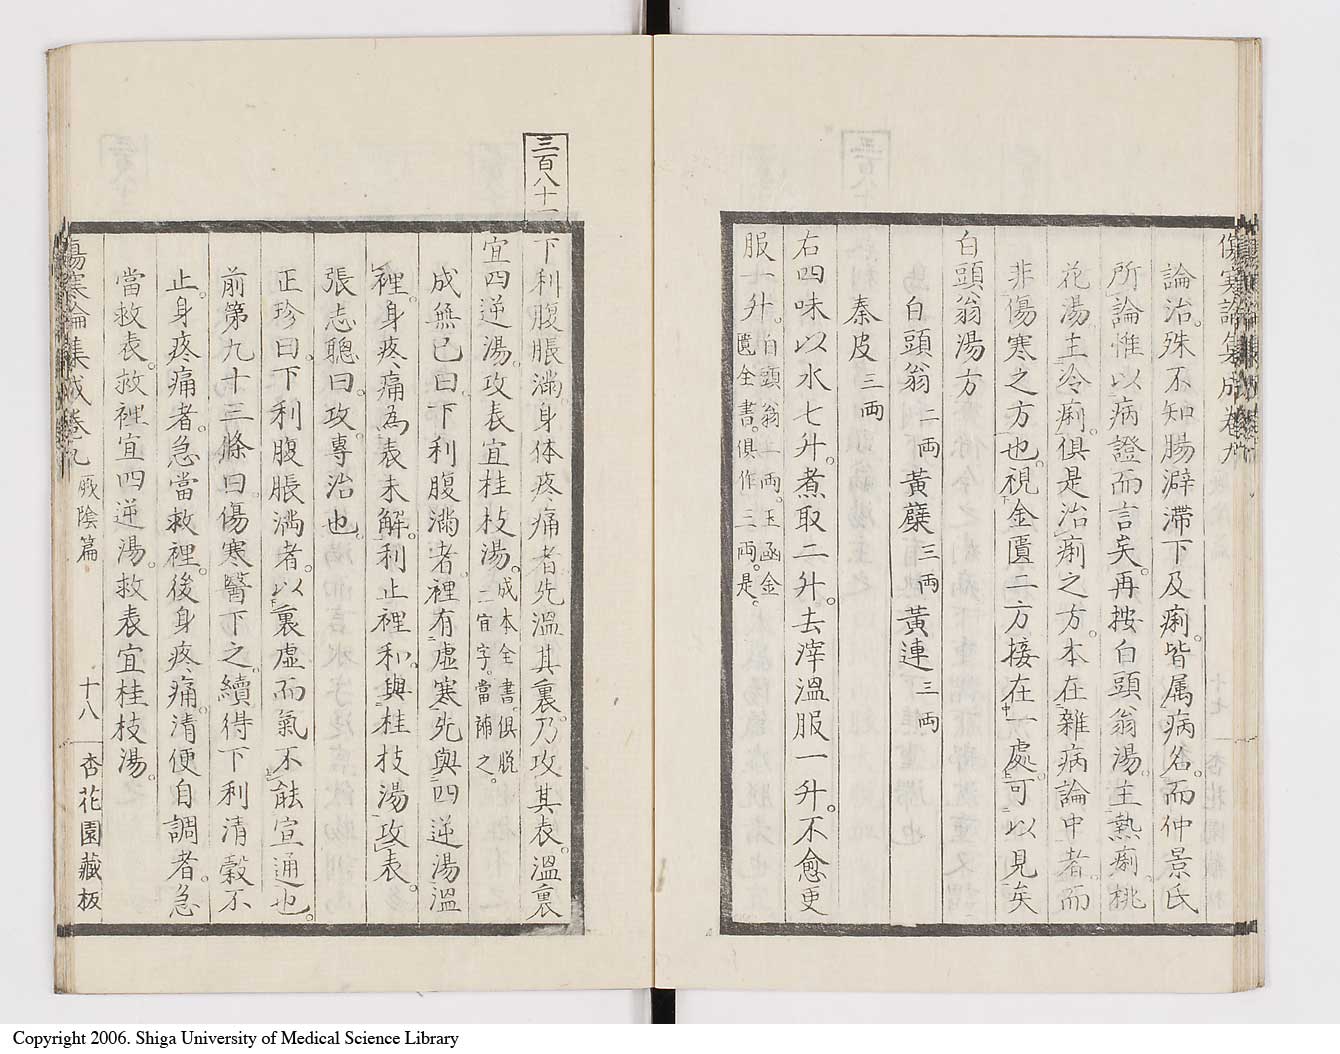 論治。殊不知腸澼滯下及痢。皆属病名。而仲景氏
所論惟以病證而言矣。再按白頭翁湯。主熱痢。桃
花湯主冷痢。俱是治痢之方。本在雜病論中者。而
非傷寒之方也。視金匱二方接在一處。可以見矣
白頭翁湯方
白頭翁二両 黃蘗三両 黃連三両
秦皮三両
右四味以水七升。煮取二升。去滓溫服一升。不愈更
服一升。白頭翁二両。玉函金
匱全書。俱作三両。是。
三百八十一
下利腹脹滿。身体疼痛者。先溫其裏。乃攻其表。溫裏
宜四逆湯。攻表宜桂枝湯。成本全書。俱脫
二宜字。當補之。
成無已曰。下利腹滿者。裡有虛寒。先與四逆湯溫
裡。身疼痛為表未解。利止裡和。與桂枝湯攻表。
張志聰曰。攻。專治也。
正珍曰。下利腹脹滿者。以裏虛而氣不能宣通也。
前第九十三條曰。傷寒醫下之。續得下利清穀不
止。身疼痛者。急當救裡。後身疼痛。清便自調者。急
當救表。救裡宜四逆湯。救表宜桂枝湯。
傷寒論集成卷九 厥陰篇 十八 杏花園藏板